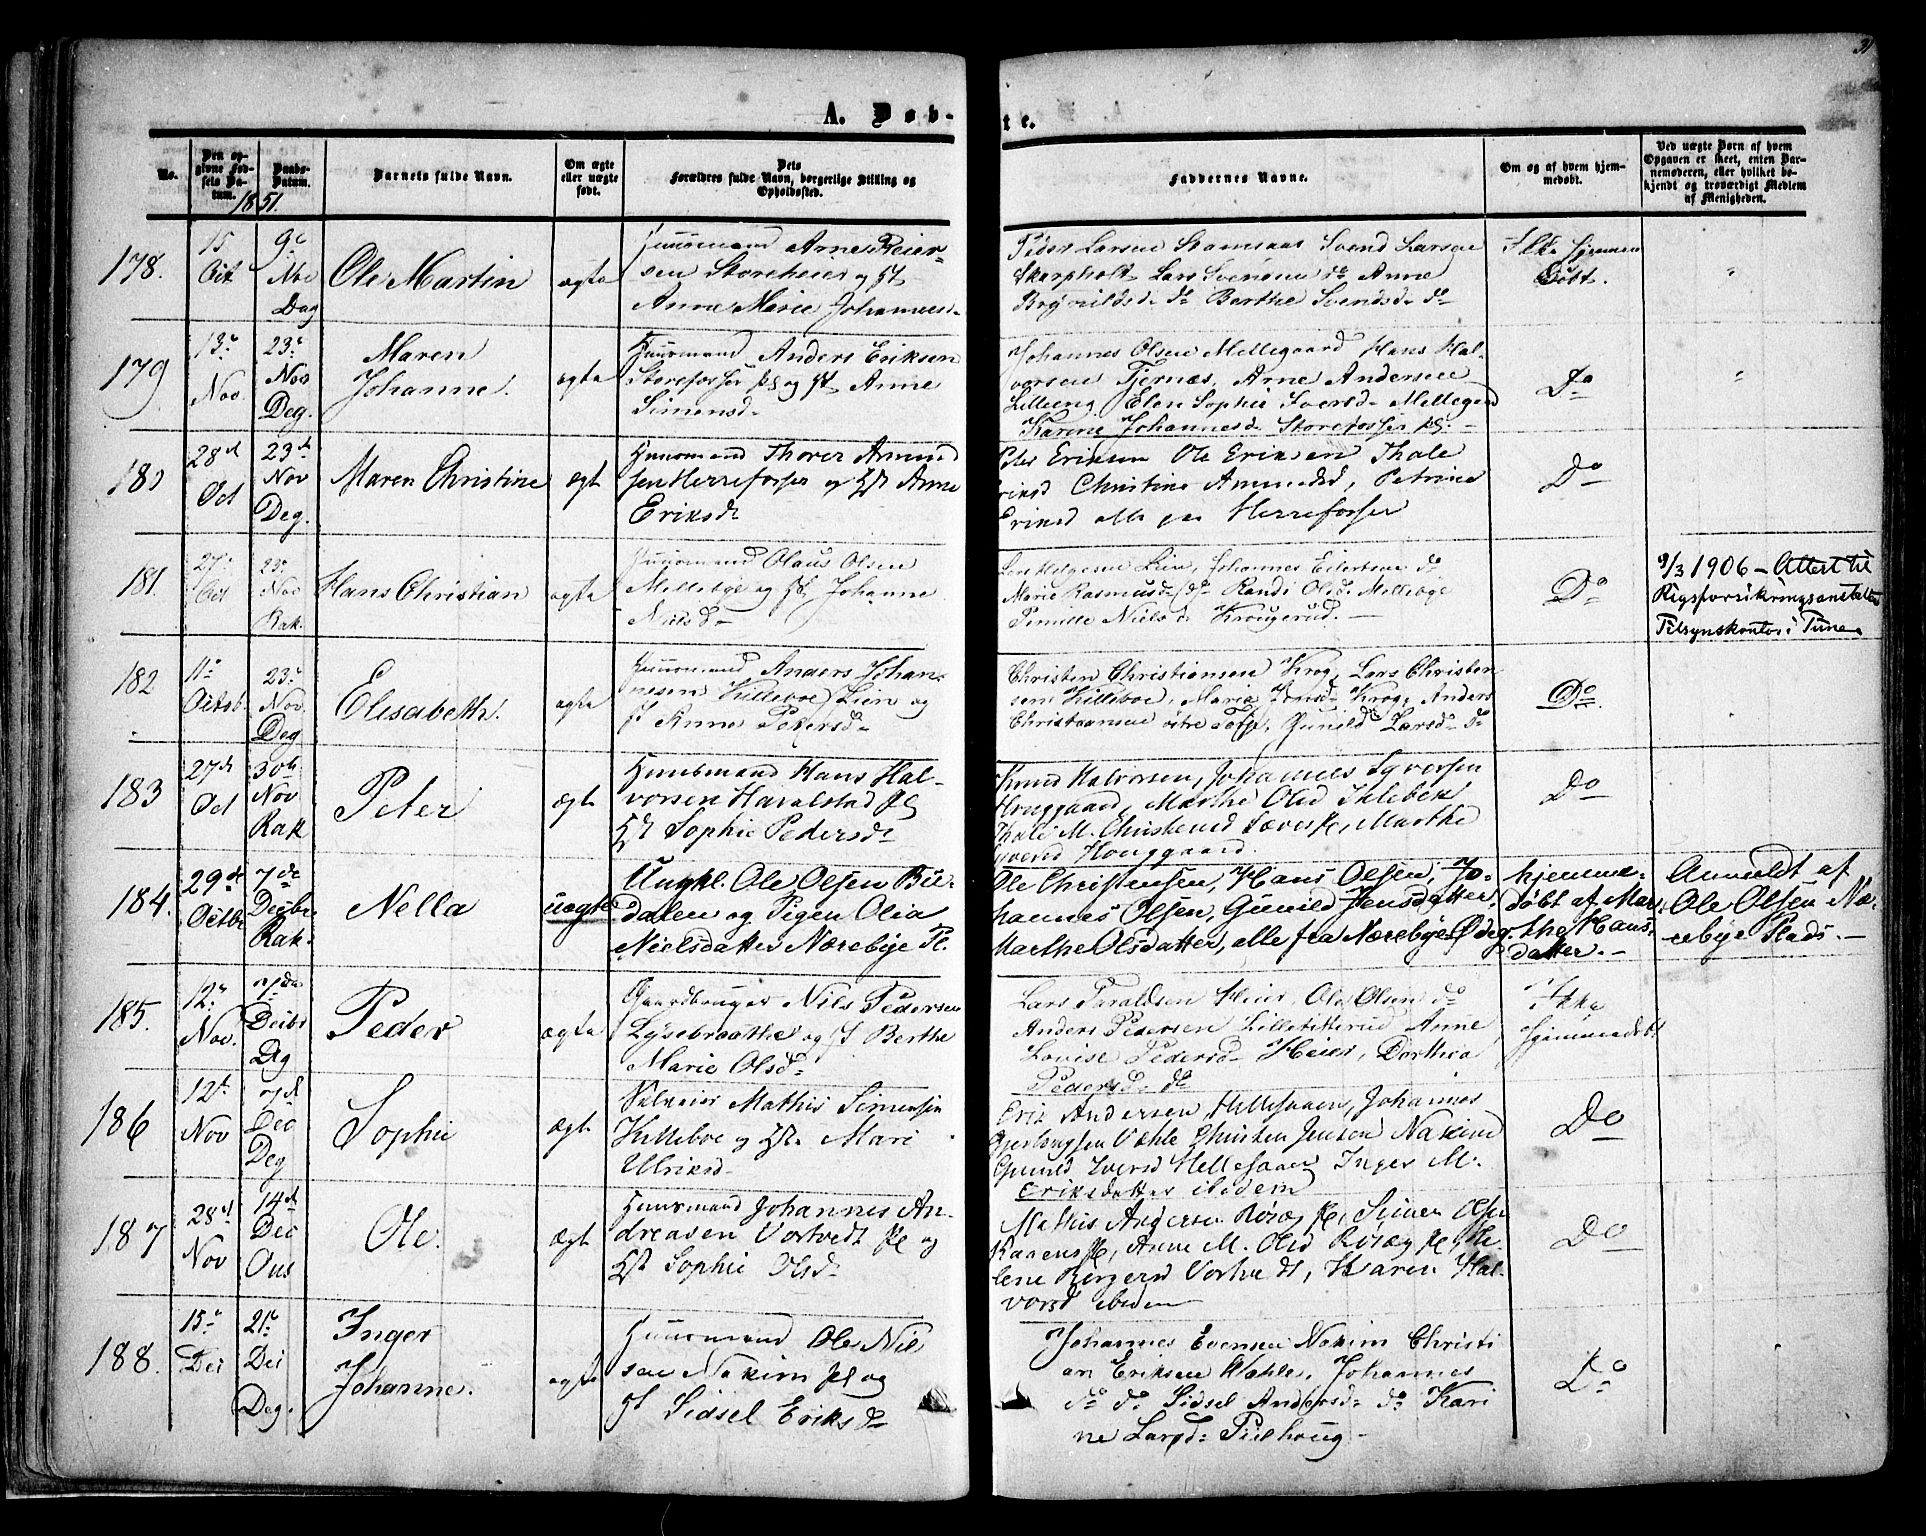 31
A. Døb-
te.
No.
Den op-
givne Fød-
sels Da-
tum.
Daabs-
Datum.
1851.
Barnets fulde Navn.
Om ægte
eller uægte
født.
Dets
Forældres fulde Navn, borgerlige Stilling og
Opholdssted.
Faddernes Navne.
Om og af hvem hjem-
medøbt.
Ved uægte Børn af hvem
Opgaven er skeet, enten Bar-
nemoderen, eller hvilket be-
kjendt og troværdigt Medlem
af Menigheden.
178.
15
Oct
9e
Nov
Dag
Ole Martin
ægte
Huusmand Arne Reier-
sen Storeheier og H
Anne Marie Johannesd-
Peder Larsen Svend Larsen
Skarpholt Lars Svensen do Anne
Brynildsd do Berthe Svendsd do
Ikke hjemme
døbt.
179
13:
Nov.
23:
Nov
Deg.
Maren
Johanne.
ægte
Huusmand Anders Eriksen
Storefosser pl og H Anne
Simensd-
Johannes Olsen Mellegaard Hans Hal-
vorsen Tjernæs, Arne Andersen
Lilleeng Elen Sophie Iversd- Mellegaard
Karine Johannesd Storefosser pl. -
Do
180
28d
Oct
23d
Nov
Deg.
Maren Christine
ægt
Huusmand Thorer Amund
sen Herrefosser og H Anne
Eriksd
Peter Eriksen Ole Eriksen Thale
Eriksd Christine Amundsd, Petrine
Eriksd alle paa Herrefosser
Do
181.
27:
Oct
23:
Nov
Rak.
Hans Christian
ægte
Huusmand Olaus Olsen
Mellebye og H. Johanne
Nielsd-
Lars Helgesen Lien, Johannes Eilertsen do
Marie Rasmusd do Randi Olsd. Mellebye
Pernille Nielsd Krougerud. -
Do
9/3 1906 - Attest til
Rigsforsikringsanstalten
Tilsynskontor i Tune.
182
11:
Octob
23:
Nov.
Deg
Elisabeth.
ægte
Huusmand Anders Johan-
nesen (Killeboe) Lien og
H Anne Petersd-
Christen Christiansen Krog, Lars Christen
sen Killeboe, Maria Jonsd- Krog, Anders
Christiansen østre Toft, Gunild Larsd- do
Do
183
27d
Oct
30te
Nov
Rak
Peter
ægt
Huusmand Hans Hal-
vorsen Haralstad pl
H Sophie Pedersd
Knud Halvorsen, Johannes Syversen
Houggaard, Marthe Olsd Iklebek
Thale M. Christensd, Marthe
Syversd Houggaard.
Do
184.
29de
Octbr
7de
Decbr
Rak.
Nella
uægte
Ungkl. Ole Olsen Bu-
dalen og Pigen Olia
Nielsdatter Nærebye Pl.
Ole Christensen, Hans Olsen, Jo-
hannes Olsen, Gunild Jensdatter,
Marthe Olsdatter, alle fra Nærebye Ødeg.
hjemme-
døbt af Mar-
the Hans-
datter. -
Anmeldt af
Ole Olsen Næ-
rebye Plads. -
185.
12:
Nov.
7de
Decbr
Dg
Peder
ægte
Gaardbruger Nils Pedersen
Lysebraathe og H Berthe
Marie Olsd-
Lars Taraldsen Heier, Ole Olsen do
Anders Pedersen Lilletitterud Anne
Louise Pedersd- Heier, Dorthea
Pedersd- do
Ikke
hjemmedøbt
186
12t
Nov
7d
Dec
Deg
Sophie
ægt
Selveier Mathis Simensen
Killeboe og H. Mari
Ulriksd-
Eric Andersen Hellesaaen, Johannes
Gjertsengsen Vahle Christen Jensen Naxim
Gunild Iversd Hellesaaen Inger M.
Eriksdatter ibidem
Do
187
28d
Nov
14d
Dec
Ous
Ole.
ægt
Huusmand Johannes An-
dreasen Vortvedt pl og
H Sophie Olsd-
Mathis Andersen Rosæg pl, Simen Olsen
Karens pl, Anne M. Olsd Rosæg pl, He-
lene Birgersd Vortvedt, Karen Hal-
vorsd ibidem
Do
188.
15:
Dec
21:
Dec
Deg.
Inger
Johanne.
ægte
Huusmand Ole Niel
sen Naxim pl og
H Sidsel Eriksd
Johannes Evensen Naxim Christi
an Eriksen Vahle, Johannes
do do Sidsel Andersd- do Kari
ne Larsd- Pilehoug -
Do